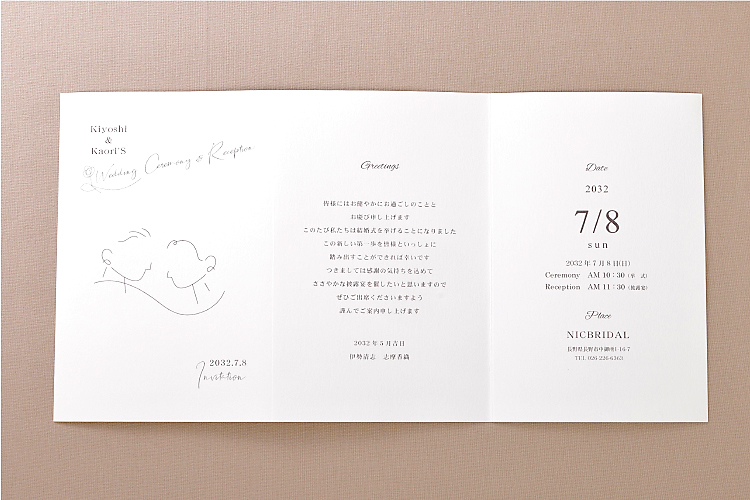 Kiyoshi
&
Kaori'S
Wedding Ceremony & Reception
2032.7.8
Invitation
Greetings
皆様にはお健やかにお過ごしのことと
お慶び申し上げます
このたび私たちは結婚式を挙げることになりました
この新しい第一歩を皆様といっしょに
踏み出すことができれば幸いです
つきましては感謝の気持ちを込めて
ささやかな披露宴を催したいと思いますので
ぜひご出席くださいますよう
謹んでご案内申し上げます
2032年5月吉日
伊勢清志 志摩香織
Date
2032
7/8
sun
2032年7月8日(日)
Ceremony AM 10:30 (挙 式)
Reception AM 11:30 (披露宴)
Place
NICBRIDAL
長野県長野市中御所1-16-7
TEL 026-226-6363